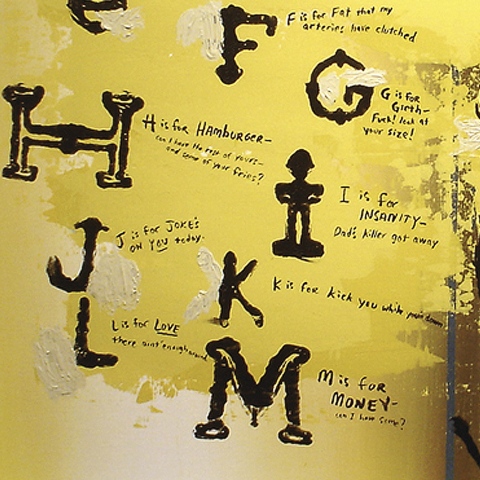 e
F
F is for Fat that my
arteries have clutched
G
G is for
Girth-
Fuck! look at
your size!
H
H is for HAMBURGER-
can I have the rest of yours-
and some of your fries?
I
I is for
INSANITY-
Dad's killer got away
J
J is for JOKE'S
ON YOU today.
K
K is for kick you while you're down
L
L is for LOVE
there aint enough around
M
M is for
MONEY-
can I have some?